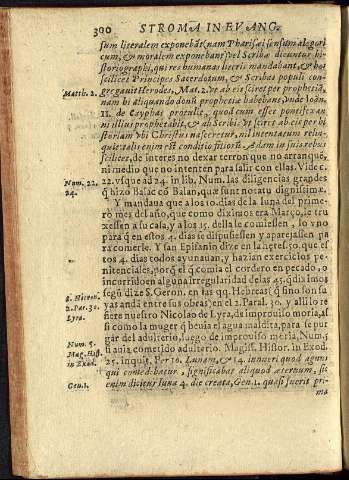 300 STROMA IN EVANG.
sum literalem exponebãt (nam Pharisæi sensum alegori
cum, & moralem exponebans) vel Scribæ dicuntur hi-
storiographi, qui res humanas literis mandabant, & hos
scilicet Principes Sacerdotum, & Scribas populi con-
Matth. 2. gregauit Herodes, Mat. 2. vt ab eis sciret per prophetiã,
nam hi aliquando donũ prophetiæ habebant, vnde Ioan.
11. de Cayphas protulit, quod cum esset pontifex an
ni illius prophetabit, & ab Scribis vt sciret ab eis per hi
storiam vbi Christus nasceretur, nil intentatum relin-
quit, talis enim est conditio filiorũ Adam in suis rebus
scilicet, de interes no dexar terron que no arranquẽ,
ni medio que no intenten para salir con ellas. Vide c.
Num. 22. 22. vsque ad 24. in lib. Num. las diligencias grandes
24. q̃ hizo Balac cõ Balan, quæ sunt notatu dignissimæ.
Y mandaua que a los 10. dias de la luna del prime-
ro mes del año, que como diximos era Março, se tru
xessen a su casa, y a los 15. della se comiessen, lo vno
para q̃ en estos 4. dias se dispusessen y aparejassen pa
ra comerle. Y san Epifanio dize en la hęref. 50. que es
tos 4. dias todos ayunauan, y hazian exercicios pe-
nitenciales, porq̃ el q̃ comia el cordero en pecado, o
incurrido en alguna irregularidad de las 45. q̃ diximos
segũ dize S. Geron. en las qq. Hebreas (q̃ sino son su
S. Hieron. yas anda entre sus obras) en el 2. Paral. 30. y alli lo re
2. Par. 30. fiere nuestro Nicolao de Lyra, de improuiso moria, as
Lyra. si como la muger q̃ beuia el agua maldita, para se pur
gar del adulterio, luego de improuiso moria, Num. 5.
Num. 5. si auia cometido adulterio. Magist. Histor. in Exod.
Mag. Hist. 25. inquit, Per 10. Lunam, & 14. in qua agnus
in Exod. qui comedebatur, significabat aliquod æternum, sic
Gen. 1. enim dicitur luna 4. die creata, Gen. 1. quasi fuerit pri-
ma